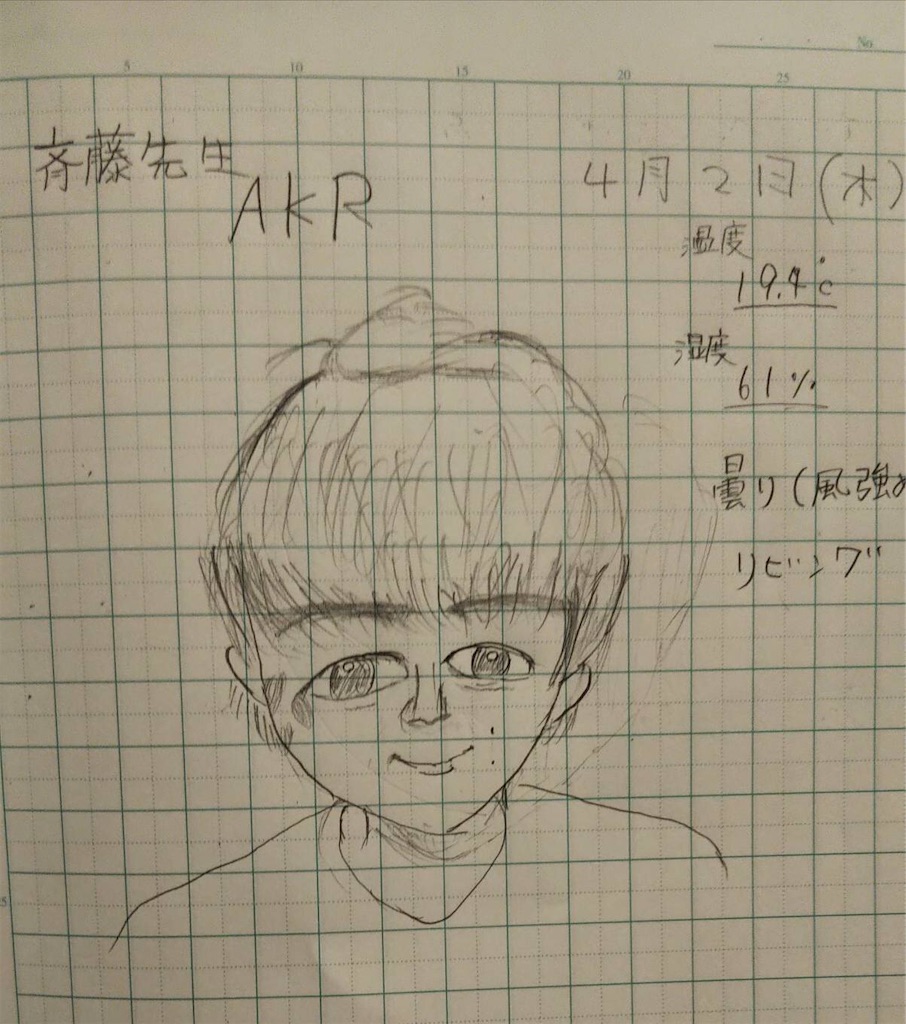 No
5 10 15 20 25
斉藤先生
AkR
4月2日(木)
温度
19.4℃
湿度
61%
曇り(風強め
リビング
5